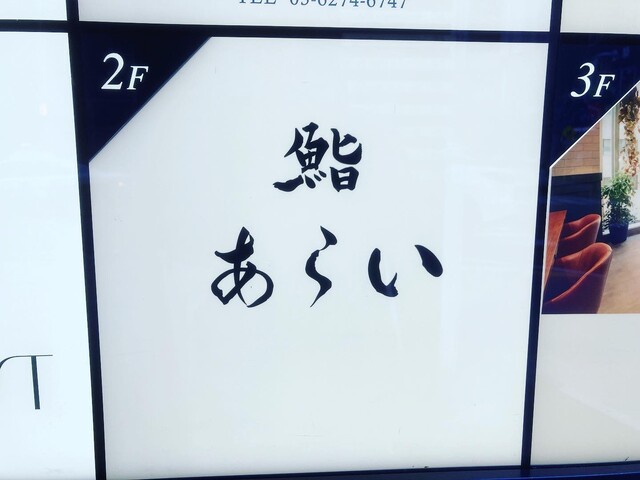 TEL 03-6274-6747
2F
鮨
あらい
3F